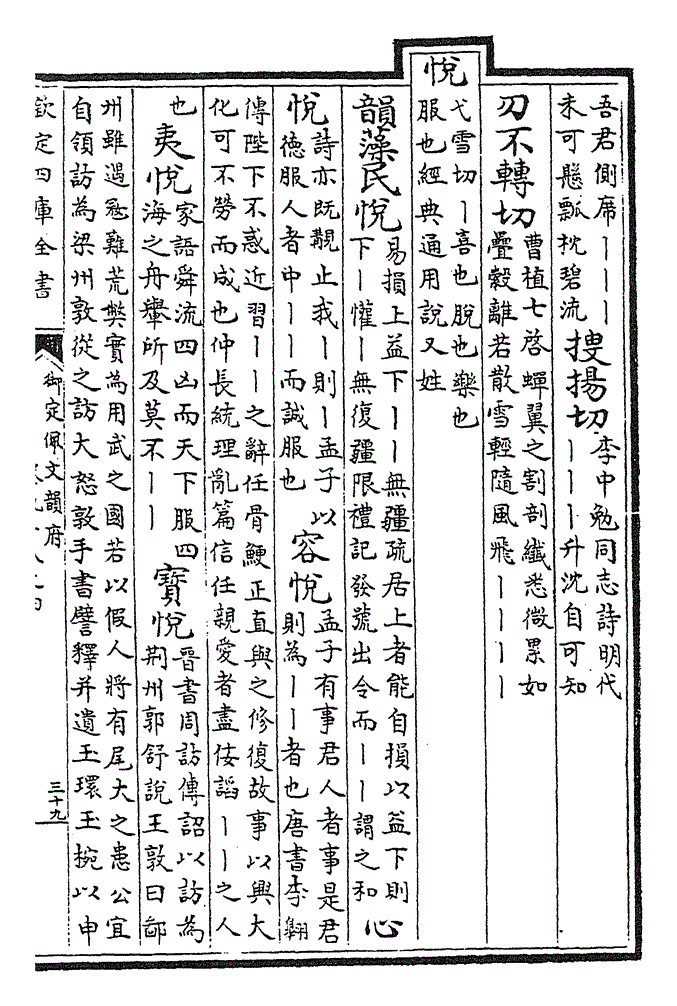 吾君側席丨丨丨
未可懸瓢枕碧流
搜揚切
李中勉同志詩明代
丨丨丨升沈自可知
刃不轉切
曹植七啓蟬翼之割剖纖悉微累如
疊縠離若散雪輕隨風飛丨丨丨丨
悅
弋雪切丨喜也脫也樂也
服也經典通用說又姓
韻藻民悅
易損上益下丨丨無疆疏居上者能自損以益下則
下丨懽丨無復疆限禮記發號出令而丨丨謂之和
心
悅
詩亦既覯止我丨則丨孟子以
德服人者中丨丨而誠服也
容悅
孟子有事君人者事是君
則為丨丨者也唐書李翺
傳陛下不惑近習丨丨之辭任骨鯁正直與之修復故事以興大
化可不勞而成也仲長統理亂篇信任親愛者盡佞諂丨丨之人
也
夷悅
家語舜流四凶而天下服四
海之舟轝所及莫不丨丨
寶悅
晉書周訪傳詔以訪為
荆州郭舒說王敦曰鄙
州雖遇寇難荒弊實為用武之國若以假人將有尾大之患公宜
自領訪為梁州敦從之訪大怒敦手書譬釋并遺玉環玉椀以申
欽定四庫全書
御定佩文韻府
三十九